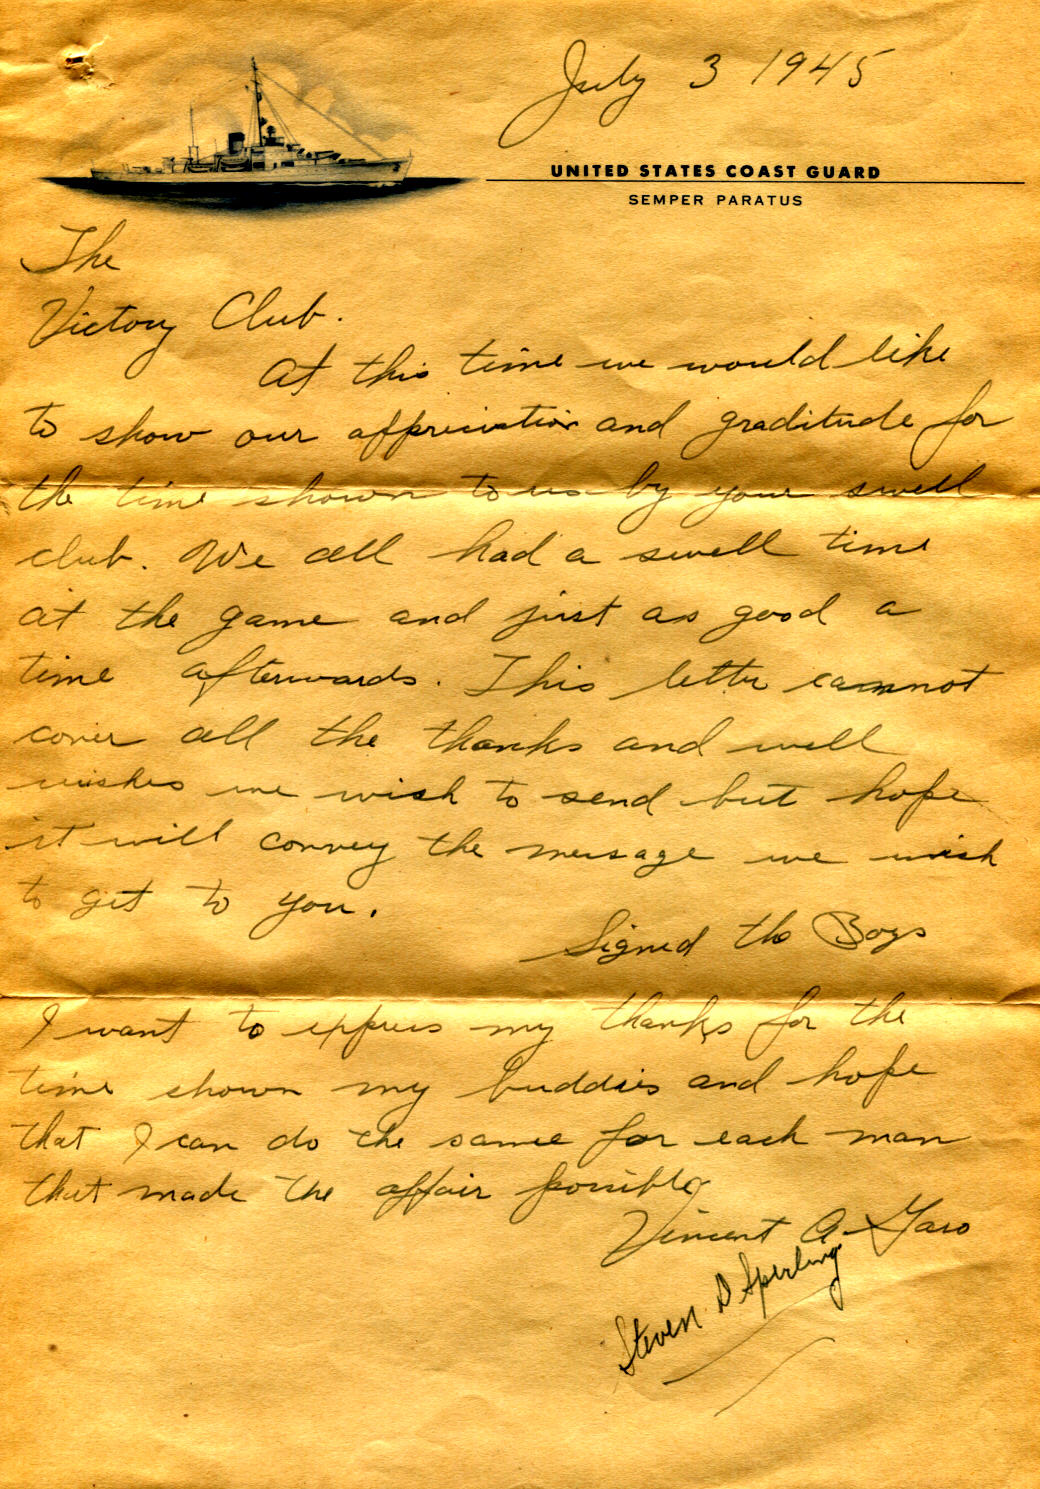 July 3 1945
UNITED STATES COAST GUARD
SEMPER PARATUS
The
Victory Club.
At this time we would like
to show our appriciation and graditude for
the time shown to us by your swell
club. We all had a swell time
at the game and just as good a
time afterwards. This letter cannot
cover all the thanks and well
wishes we wish to send but hope
it will convey the message we wish
to get to you.
Signed the Boys
I want to express my thanks for the
time shown my buddies and hope
that I can do the same for each man
that made the affair possible
Vincent A.
Steven D Sperling